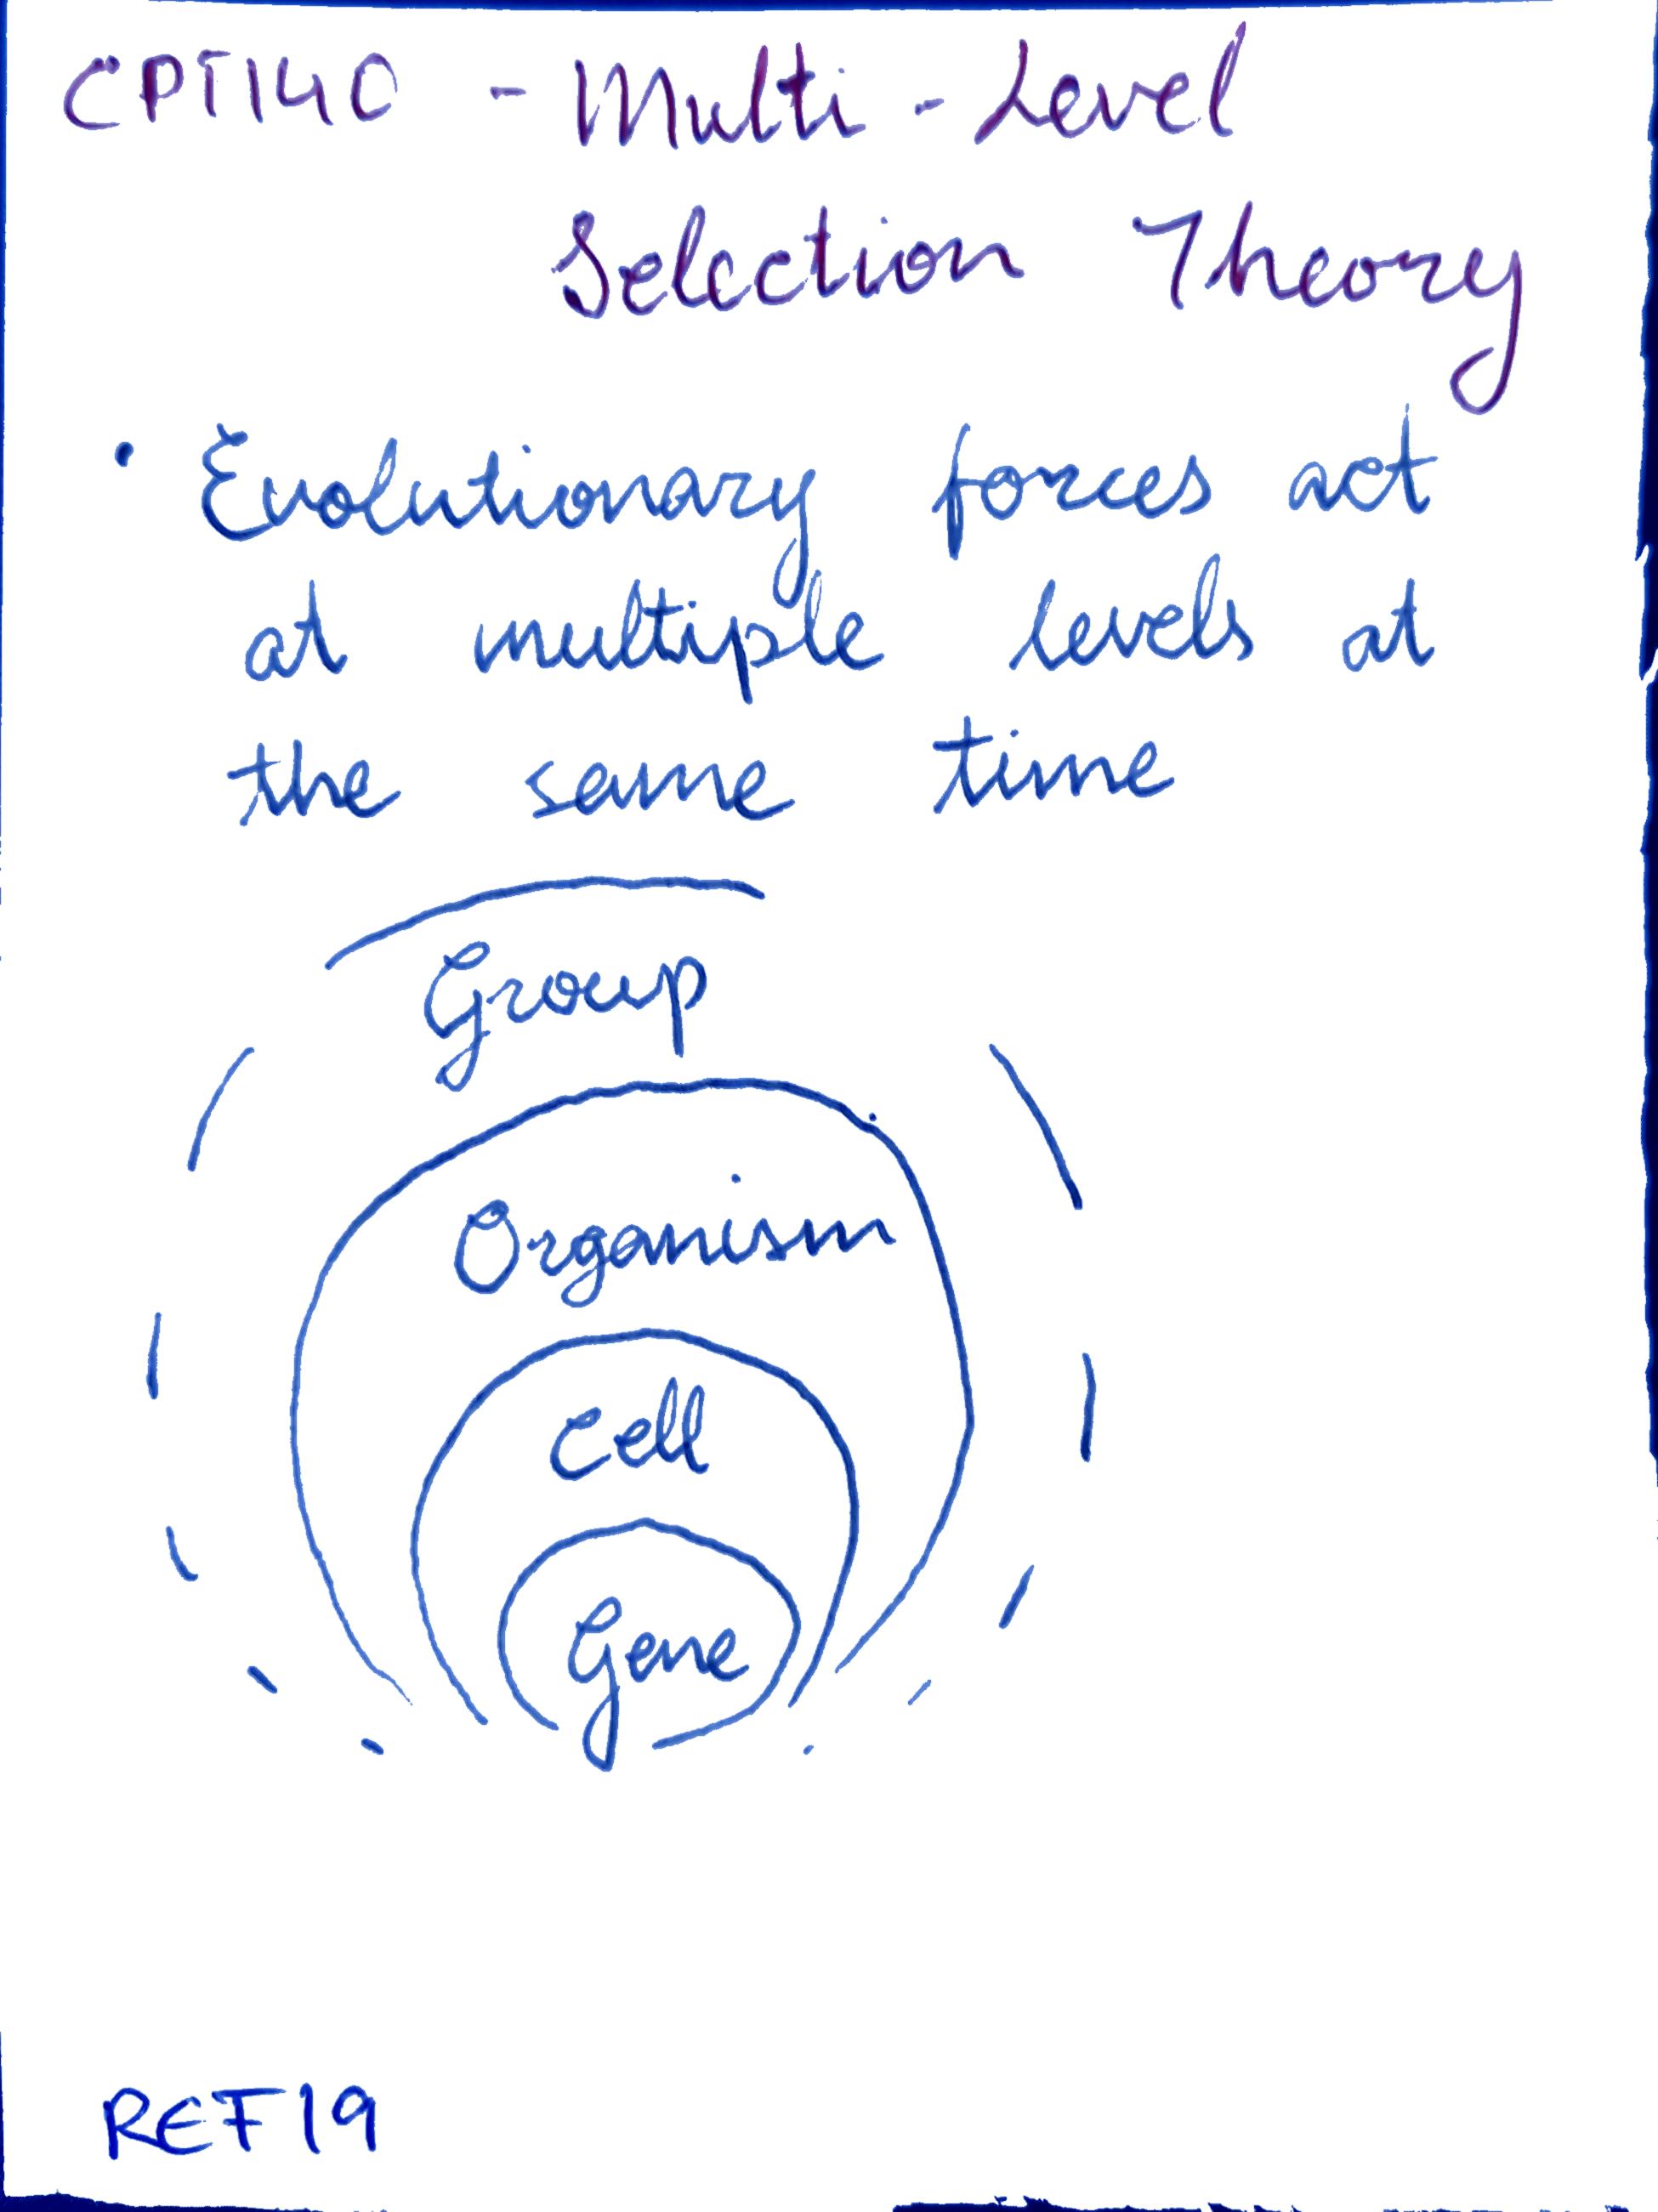 CPT140 - Multi-Level
Selection Theory
• Evolutionary forces act
at multiple levels at
the same time
Group
Organism
Cell
Gene
REF19